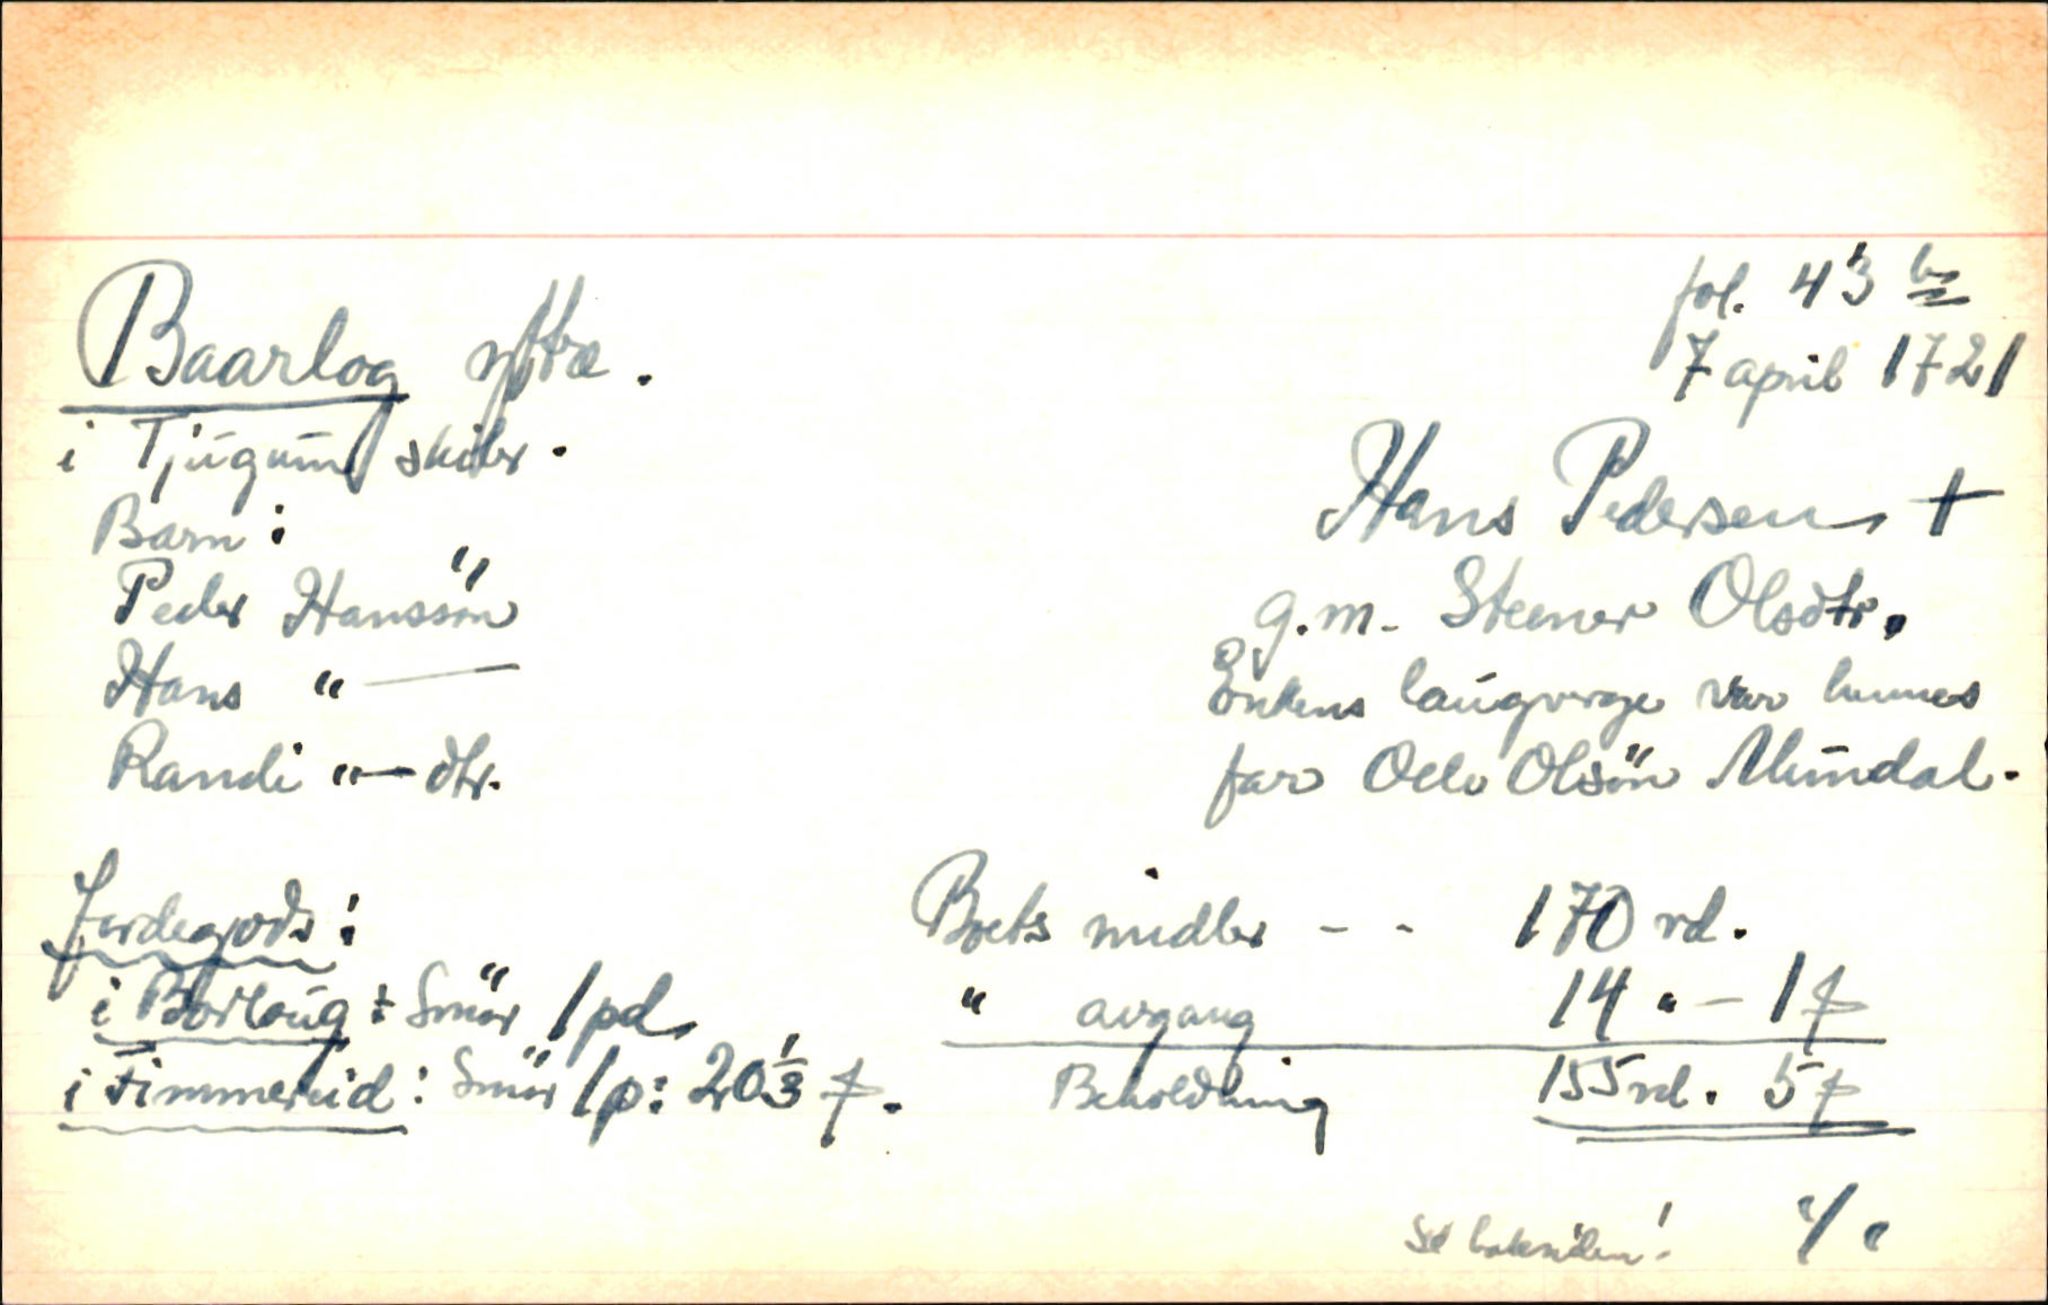 Baarlog yttre.
i Tjugum skibr.
fol. 43 b
7 april 1721
Hans Pedersen +
g.m. Steener Olsdtr.
Enkens laugverge var hennes
far Oele Olsön Mundal.
Barn:
Peder Hanssön
Hans "—
Randi "— dtr.
Jordegods:
i Borlaug: Smör 1 pd.
i Timmereid: Smör 1 p: 20 1/3 ₰.
Boets midler - - 170 rd.
" avgang 14 " - 1 ₰
Beholdning 155 rd. 5 ₰
Se baksiden! ·/·